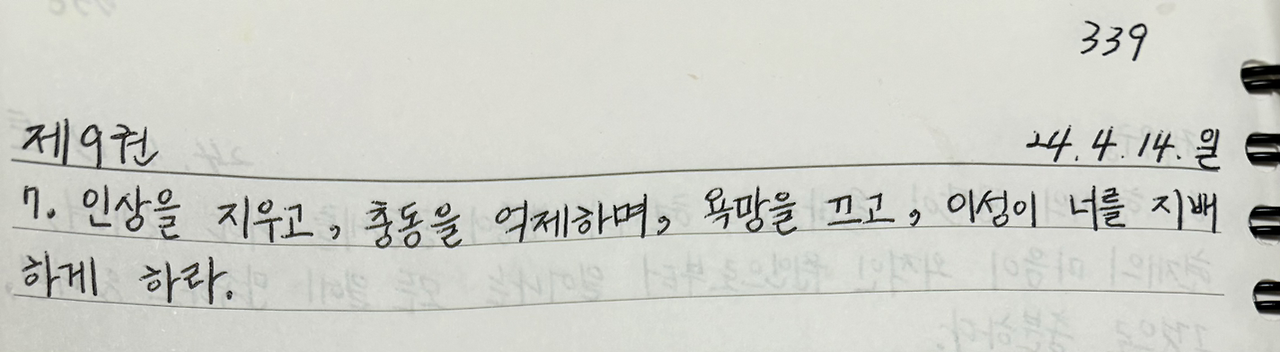 339
제9권 24.4.14.일
7. 인상을 지우고, 충동을 억제하며, 욕망을 끄고, 이성이 너를 지배
하게 하라.